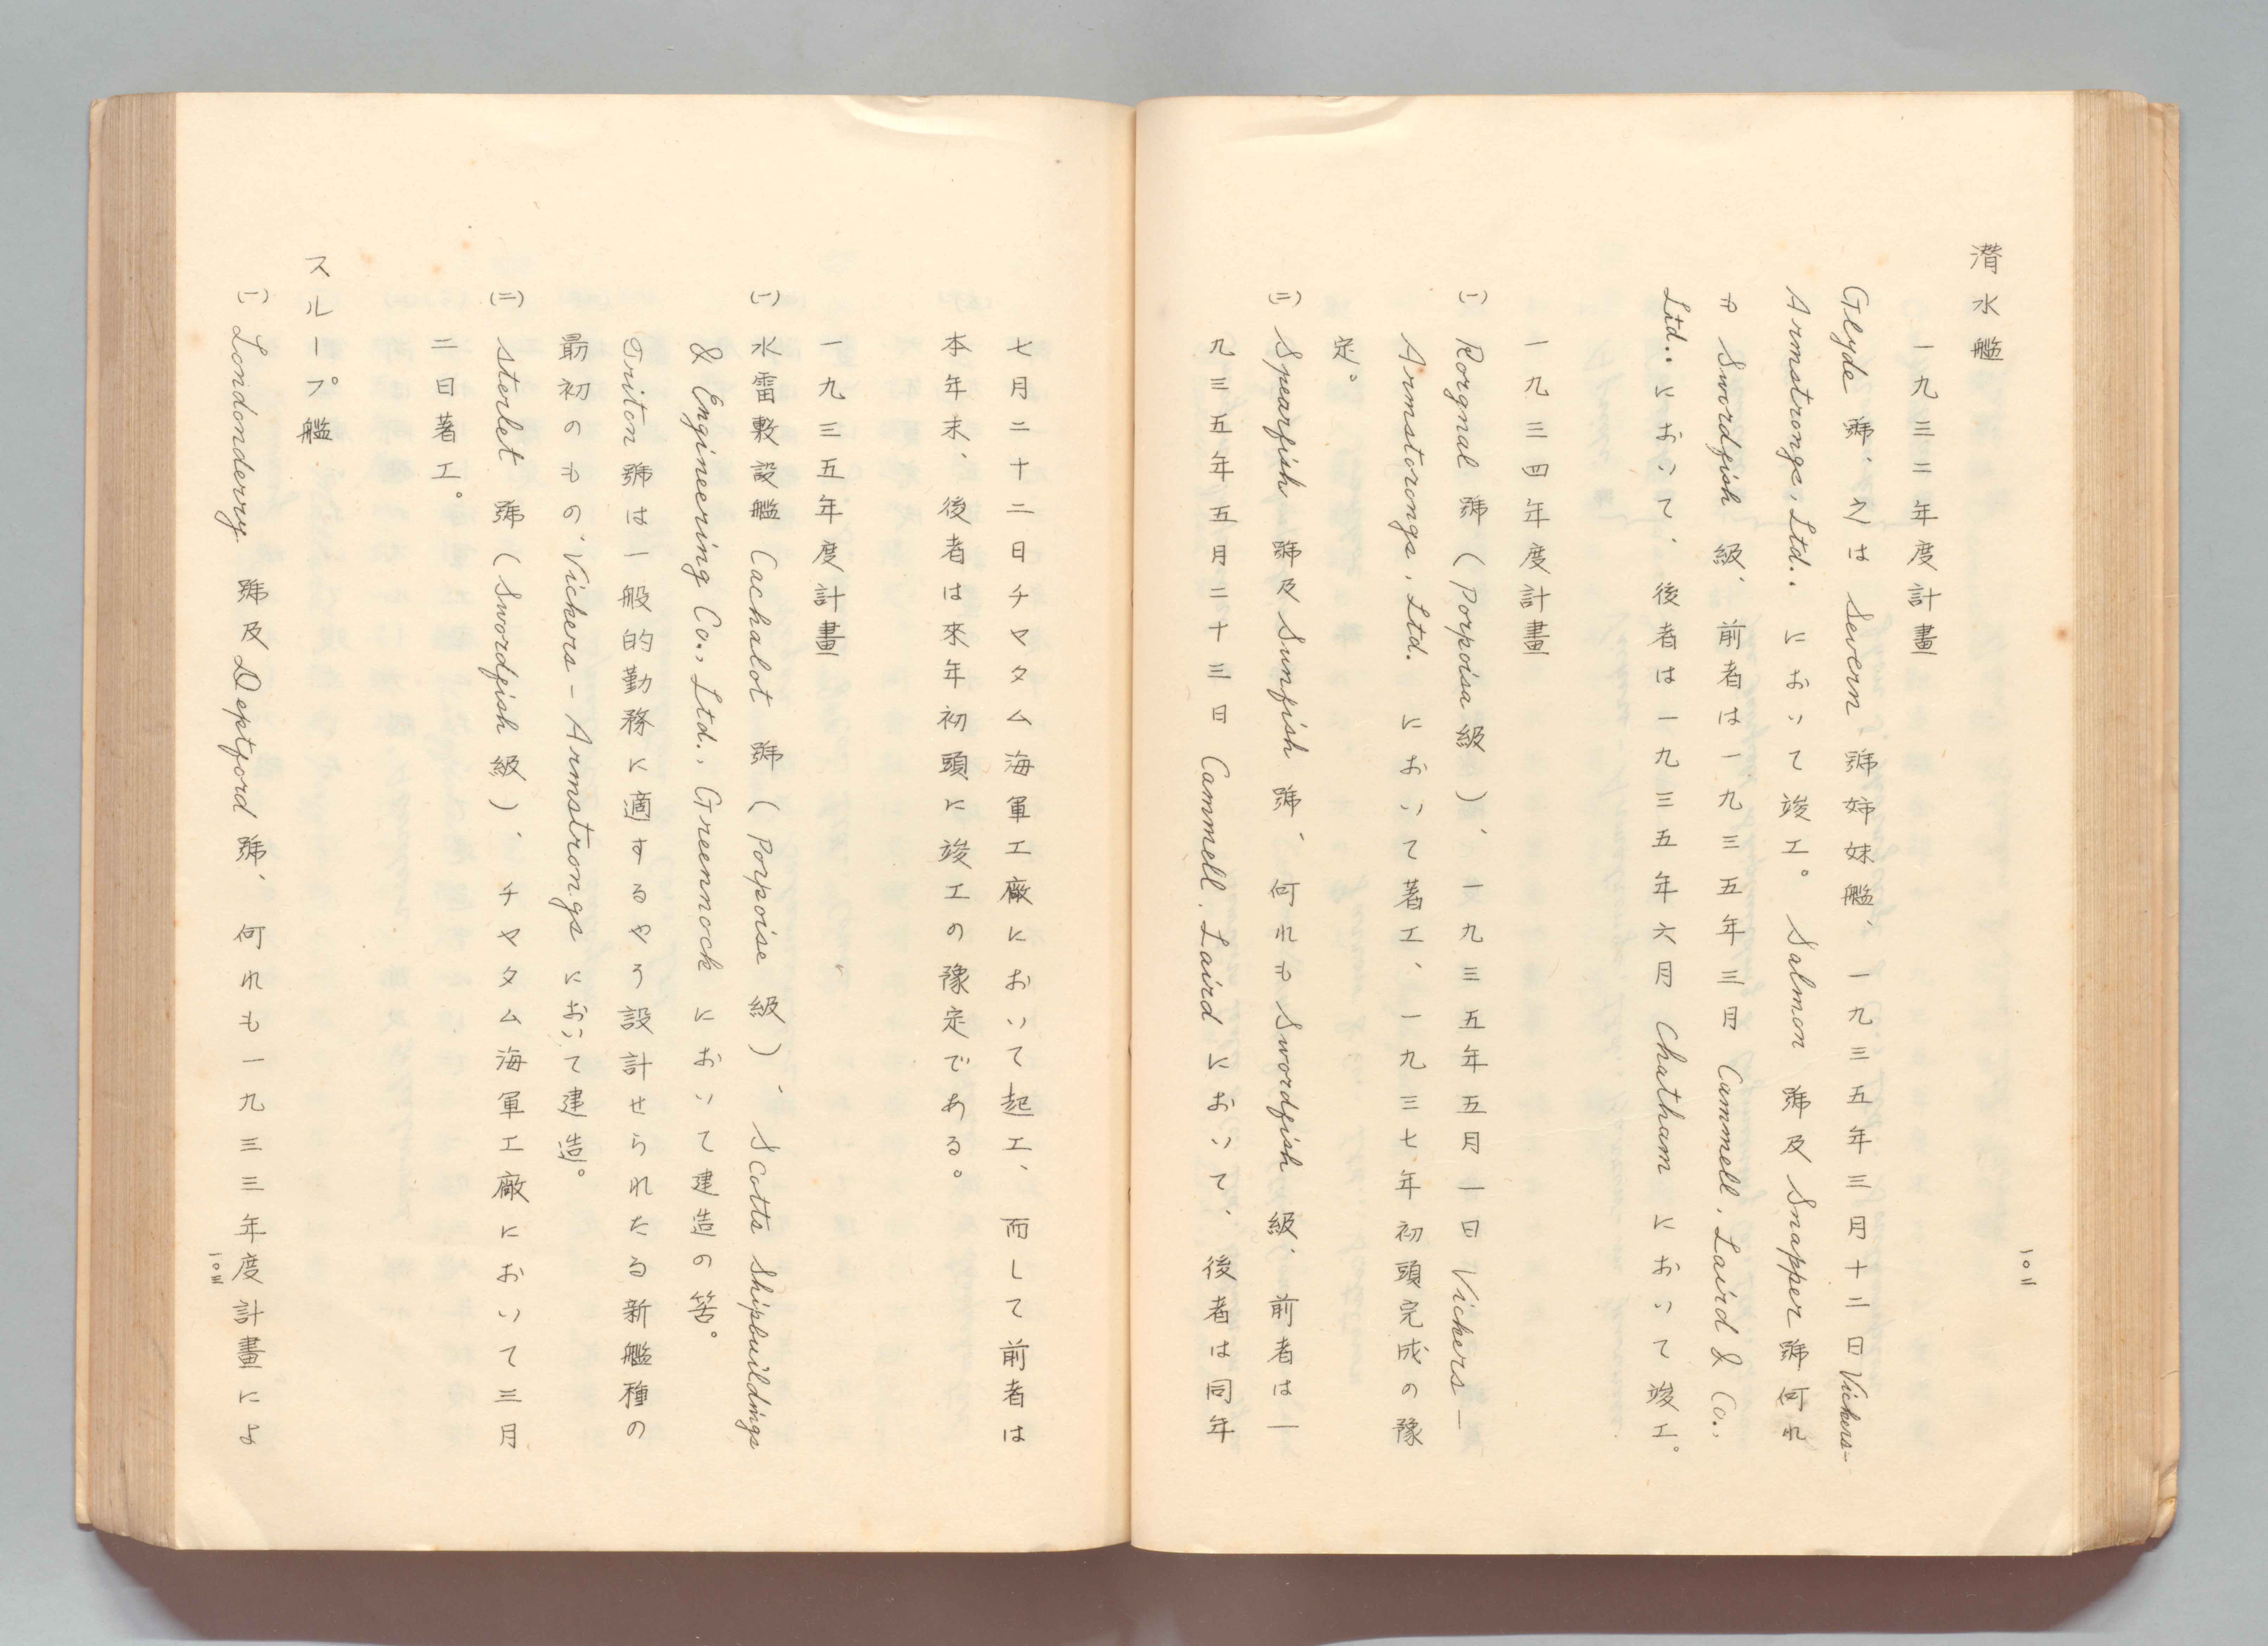 潛水艦
一九三二年度計畫
Glyde 號、之は Severn 號姉妹艦、一九三五年三月十二日 Vickers-
Armstrongs, Ltd.. において竣工。 Salmon 號及 Snapper 號何れ
も Swordfish 級、前者は一九三五年三月 Cammell, Laird & Co.,
Ltd.. において、後者は一九三五年六月 Chatham において竣工。
一九三四年度計畫
(一) Rorqnal 號 (Porpoisa 級)、一九三五年五月一日 Vickers-
Armstorongs, Ltd. において著工、一九三七年初頭完成の豫
定。
(二) Spearfish 號及 Sunfish 號、何れも Swordfish 級、前者は一
九三五年五月二十三日 Cammell, Laird において、後者は同年
一〇二
七月二十二日チヤタム海軍工廠において起工、而して前者は
本年末、後者は來年初頭に竣工の豫定である。
一九三五年度計畫
(一) 水雷敷設艦 Cachalot 號 (Porpoise 級)、Scotts Shipbuildings
& Engineering Co., Ltd., Greennock において建造の筈。
Triton 號は一般的勤務に適するやう設計せられたる新艦種の
最初のもの、Vickers-Armstrongs において建造。
(二) Sterlet 號 (Swordfish 級)、チヤタム海軍工廠において三月
二日著工。
スループ艦
(一) Londonderry 號及 Deptford 號、何れも一九三三年度計畫によ
一〇三